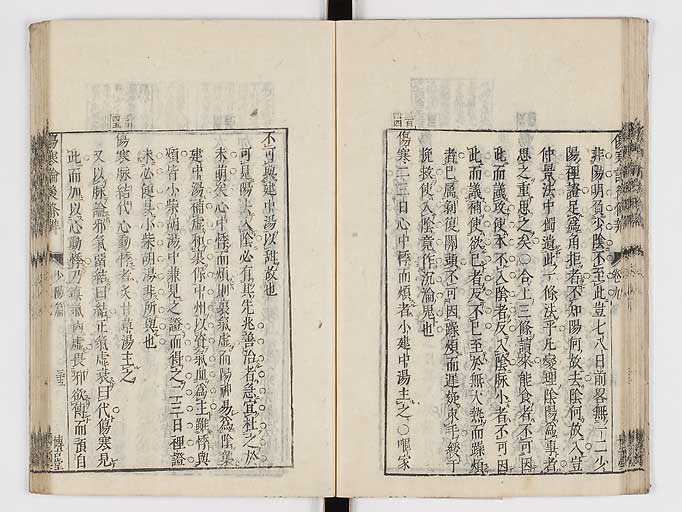 非陽明負少陰不至此豈七八日前畧無一二少
陽裡證足爲角拒者不知陽何故去陰何故入豈
仲景法中獨遺此一條法乎凡變經陰陽爲事者
思之重思之矣○合上三條讀來能食者不可因
此而議攻使本不入陰者反入陰脉小者不可因
此而議補使欲已者反不已至於無大熱而躁煩
者已屬剝復關頭不可因躁煩而遲疑束手絞干
挽救使入陰竟作沉淪鬼也
傷寒二三日心中悸而煩者小建中湯主之○嘔家
不可與建中湯以甜故也
可見陽去入陰必有其先兆善治者急宜杜之於
未萌矣心中悸而煩則裏氣虛而陽神易爲陰襲
建中湯補虛和裏保中州以資氣血爲主雖悸與
煩皆小柴胡湯中兼見之證而得之二三日裡證
未必便具小柴胡湯非所與也
傷寒脉結代心動悸者炙甘草湯主之
又以脉論邪氣留結曰結正氣虛衰曰代傷寒見
此而加以心動悸乃眞氣內虛畏邪欲傳而預自
傷寒論後條辨
少陽篇